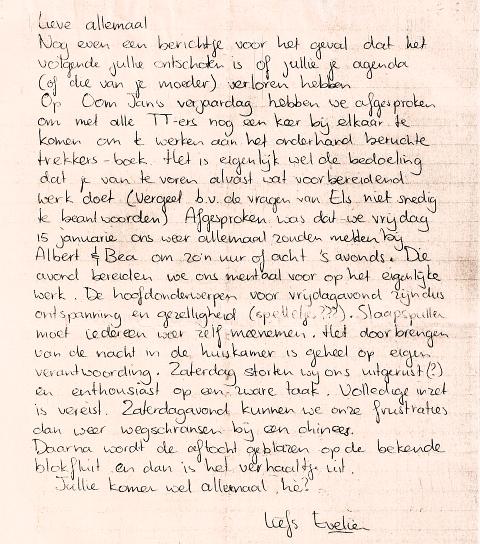 Lieve allemaal
Nog even een berichtje voor het geval dat het
volgende jullie ontschoten is of jullie je agenda
(of die van je moeder) verloren hebben
Op Oom Jan's verjaardag hebben we afgesproken
om met alle TT-ers nog een keer bij elkaar te
komen om te werken aan het onderhand beruchte
trekkers-boek. Het is eigenlijk wel de bedoeling
dat je van te voren alvast wat voorbereidend
werk doet (vergeet b.v. de vragen van Els niet snedig
te beantwoorden) Afgesproken was dat we vrijdag
15 januarie ons weer allemaal zouden melden bij
Albert & Bea om zo'n uur of acht 's avonds. Die
avond bereiden we ons mentaal voor op het eigenlijke
werk. De hoofdonderwerpen voor vrijdagavond zijn dus
ontspanning en gezelligheid (spelletje???). Slaapspullen
moet iedereen weer zelf meenemen. Het doorbrengen
van de nacht in de huiskamer is geheel op eigen
verantwoording. Zaterdag storten wij ons uitgerust(?)
en enthousiast op een zware taak. Volledige inzet
is vereist. Zaterdagavond kunnen we onze frustraties
dan weer wegschransen bij een chinees.
Daarna wordt de aftocht geblazen op de bekende
blokfluit en dan is het verhaaltje uit.
Jullie komen wel allemaal, hè?
Liefs Evelien